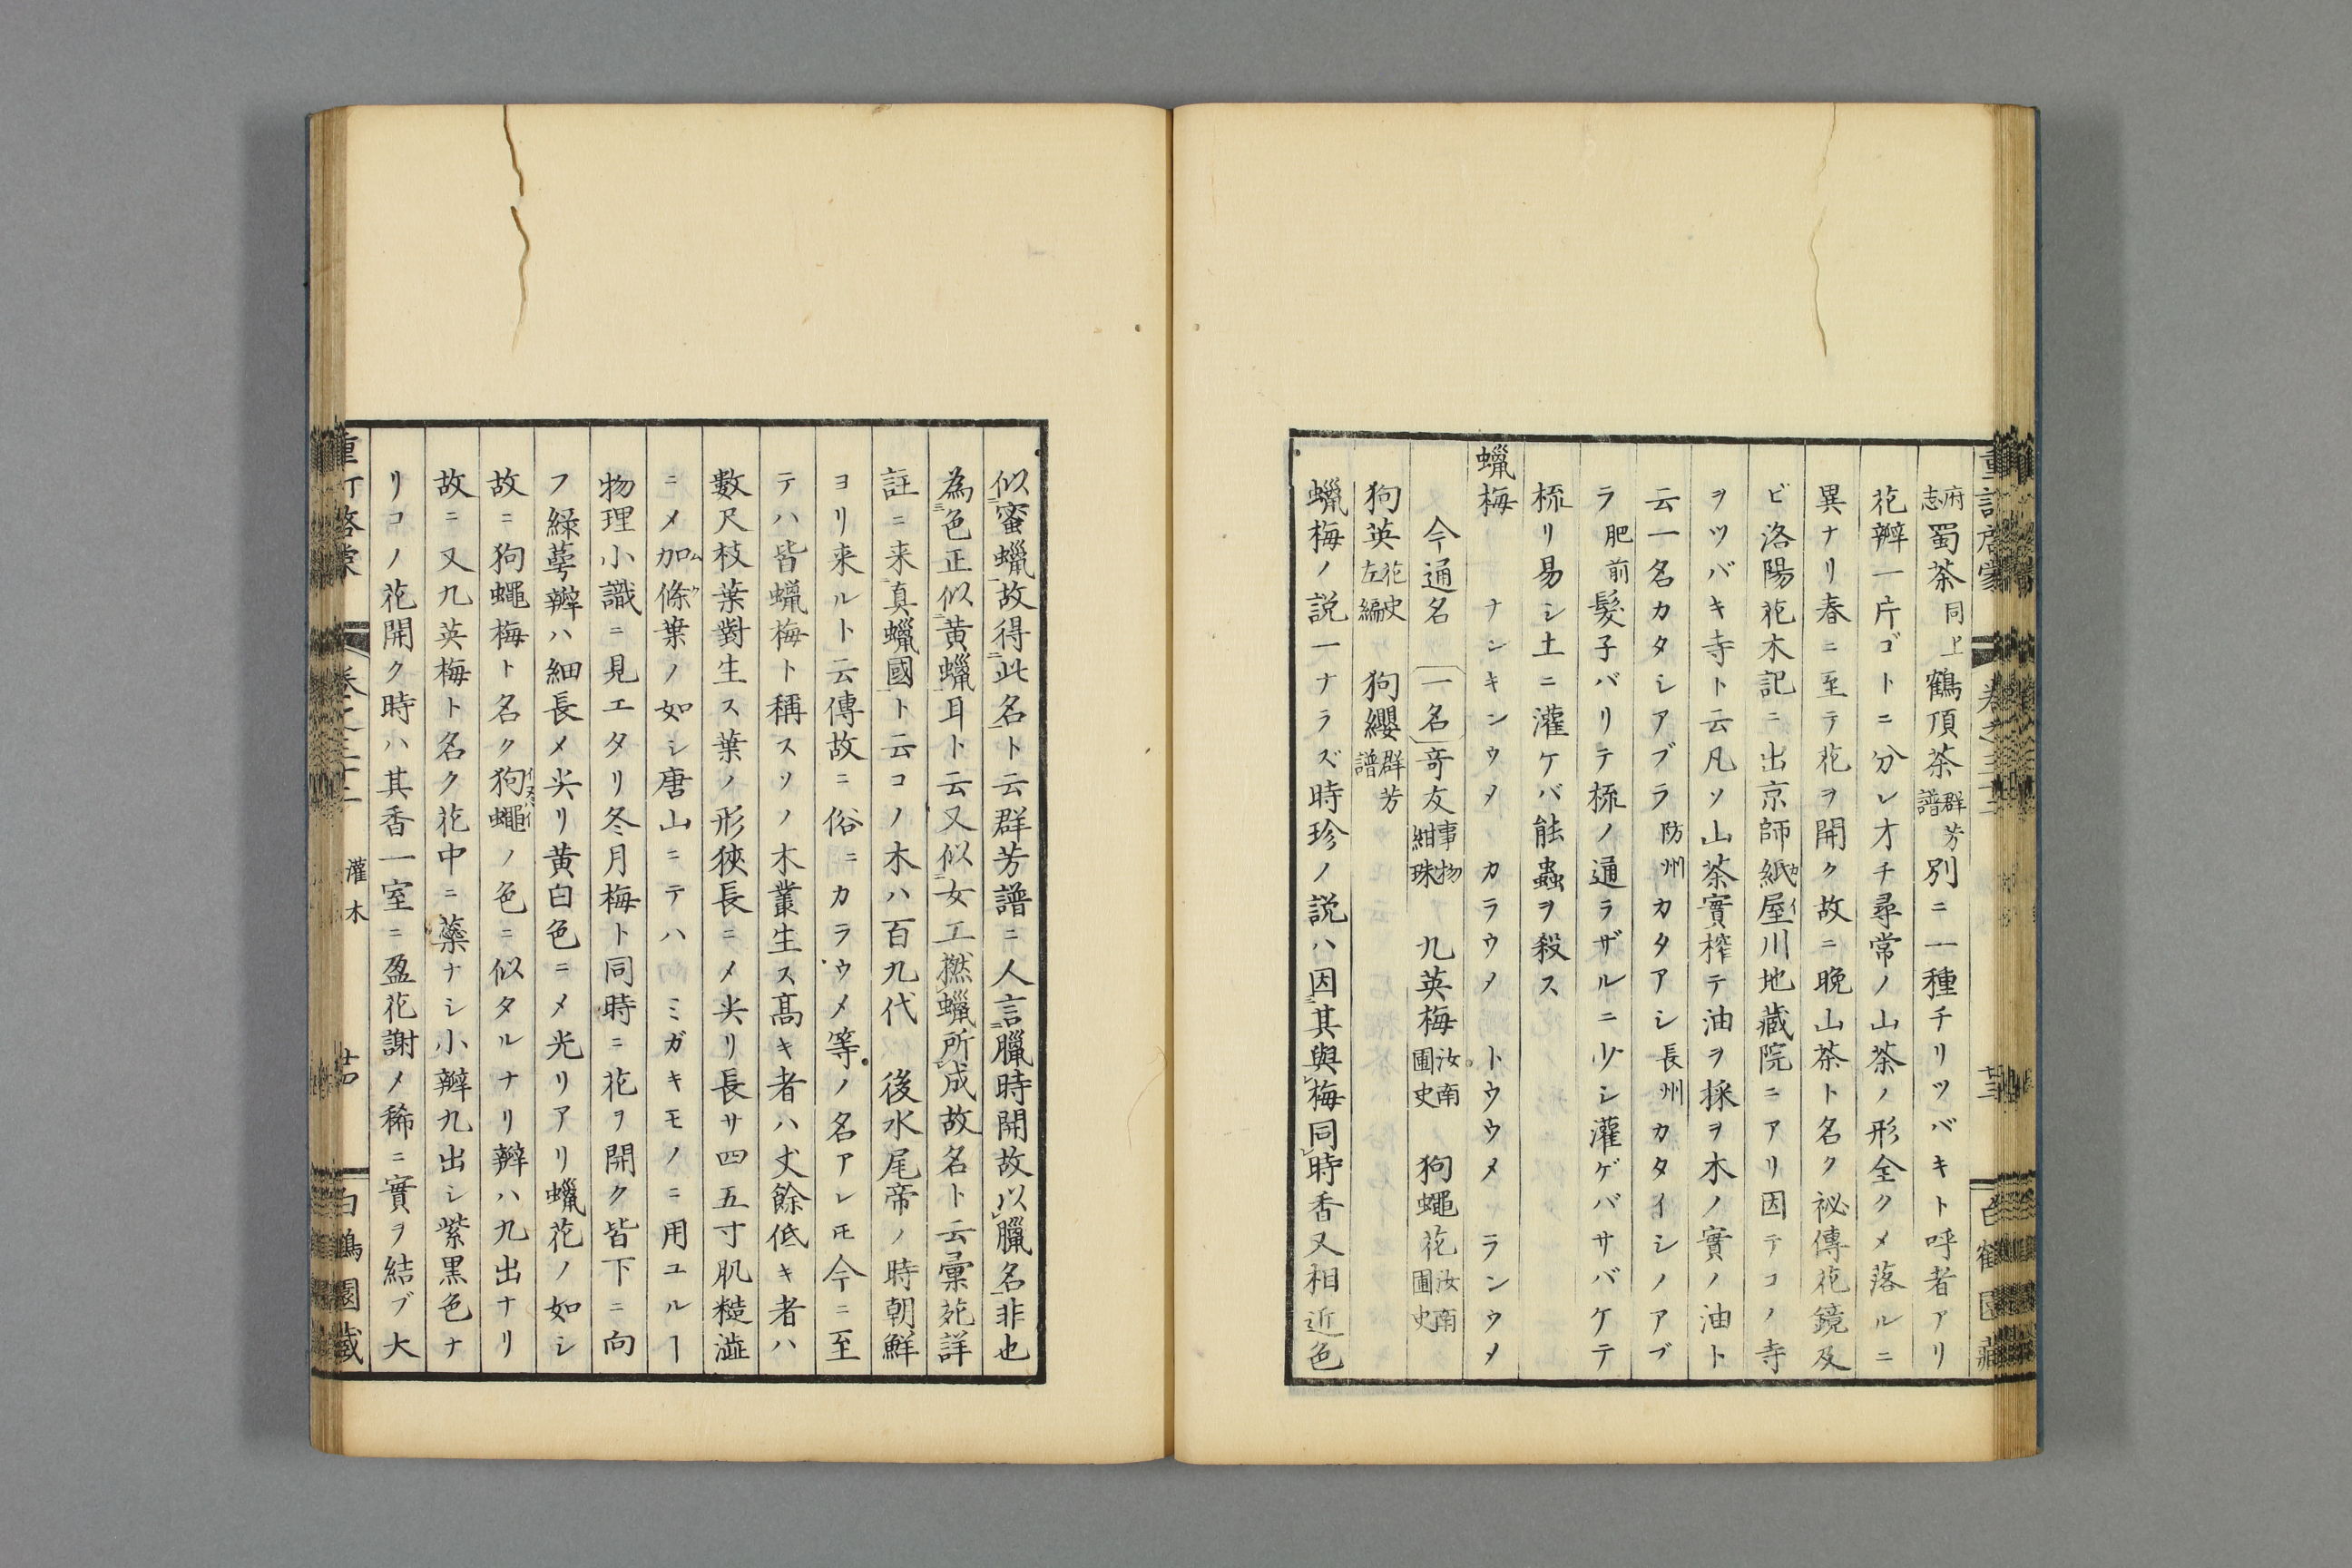 府志蜀茶同上鶴頂茶群芳譜別ニ一種チリツバキト呼者アリ
花瓣一片ゴトニ分レオチ尋常ノ山茶ノ形全クメ落ルニ
異ナリ春ニ至テ花ヲ開ク故ニ晩山茶ト名ク祕傳花鏡及
ビ洛陽花木記ニ出京師紙屋川地藏院ニアリ因テコノ寺
ヲツバキ寺ト云凡ソ山茶實榨テ油ヲ採ヲ木ノ實ノ油ト
云一名カタシアブラ防州カタアシ長州カタイシノアブ
ラ肥前髮子バリテ梳ノ通ラザルニ少シ灌ゲバサバケテ
梳リ易シ土ニ灌ケバ能蟲ヲ殺ス
蠟梅 ナンキンウメ カラウメ トウウメ ランウメ
今通名 一名 竒友事物紺珠 九英梅汝南圃史 狗蠅花汝南圃史
狗英花史左編 狗纓群芳譜
蠟梅ノ説一ナラズ時珍ノ説ハ因其與梅同時香又相近色
似蜜蠟故得此名ト云群芳譜ニ人言臘時開故以臘名非也
為色正似黄蠟耳ト云又似女工撚蠟所成故名ト云彙苑詳
註ニ来真蠟國ト云コノ木ハ百九代 後水尾帝ノ時朝鮮
ヨリ来ルト云傳故ニ俗ニカラウメ等ノ名アレ𪜈今ニ至
テハ皆蠟梅ト稱スソノ木叢生ス髙キ者ハ丈餘低キ者ハ
數尺枝葉對生ス葉ノ形狹長ニメ尖リ長サ四五寸肌糙澁
ニメ加條葉ノ如シ唐山ニテハミガキモノニ用ユルヿ
物理小識ニ見エタリ冬月梅ト同時ニ花ヲ開ク皆下ニ向
フ緑蕚瓣ハ細長メ尖リ黄白色ニメ光リアリ蠟花ノ如シ
故ニ狗蠅梅ト名ク狗蠅ノ色ニ似タルナリ瓣ハ九出ナリ
故ニ又九英梅ト名ク花中ニ蘂ナシ小瓣九出シ紫黒色ナ
リコノ花開ク時ハ其香一室ニ盈花謝メ稀ニ實ヲ結ブ大
灌木
白鶴園藏